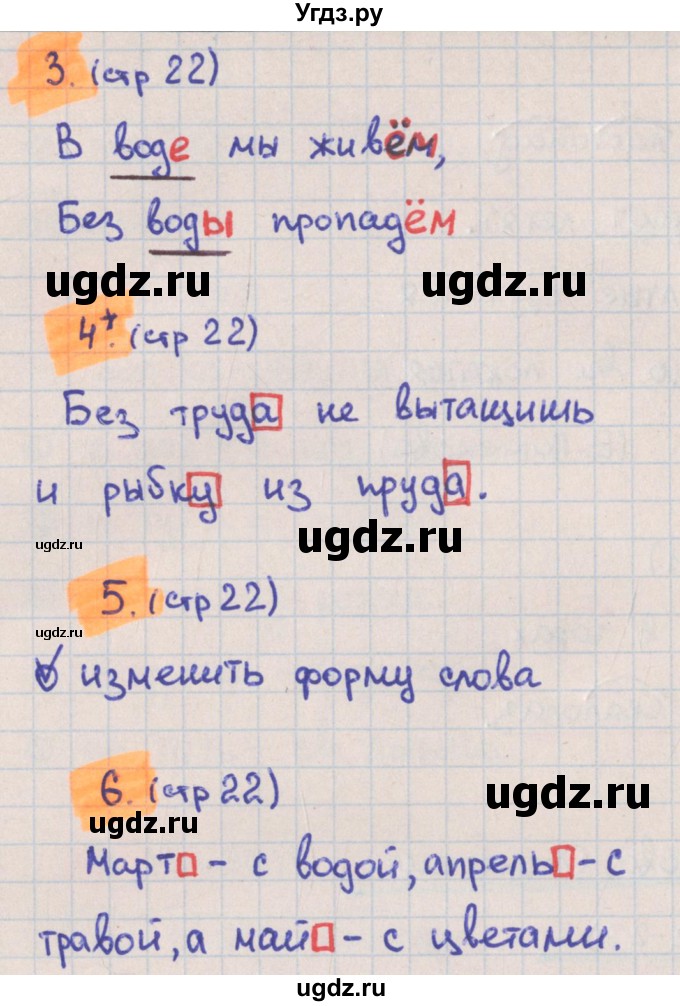 Угдз.ру
3. (стр 22)
В воде мы живём,
Без воды пропадём
ugdz.ru ugdz.ru
4*. (стр 22)
Без труда не вытащишь
и рыбку из пруда.
ugdz.ru ugdz.ru
5. (стр 22)
ugdz.ru
изменить форму слова
6. (стр 22)
ugdz.ru
ugdz.ru
Март – с водой, апрель – с
травой, а май – с цветами.
ugdz.ru